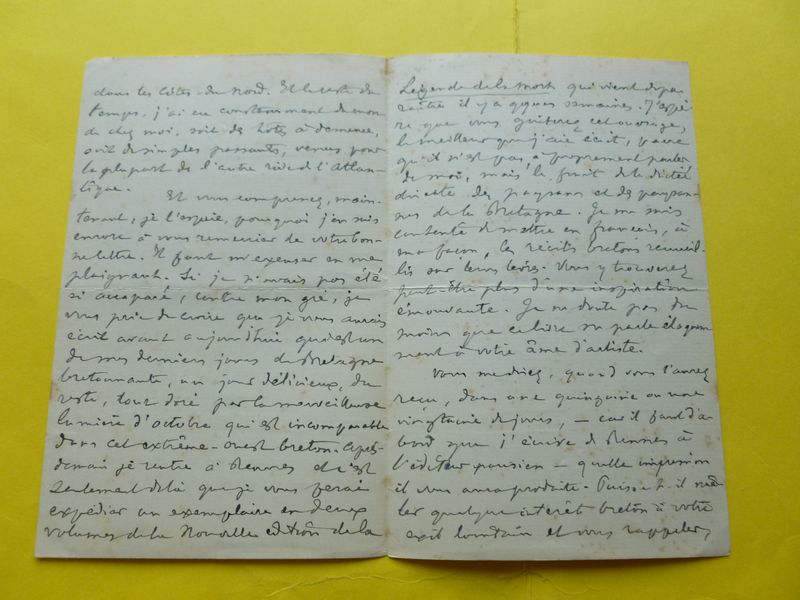 dans les Côtes-du-Nord. Et le reste du
temps, j'ai eu constamment du mon-
de chez moi, soit des hôtes à demeure,
soit de simples passants, venus pour
la plupart de l'autre rive de l'Atlan-
tique.
Et vous comprenez, main-
tenant, je l'espère, pourquoi j'en suis
encore à vous remercier de votre bon-
ne lettre. Il faut m'excuser en me
plaignant. Si je n'avais pas été
si accaparé, contre mon gré, je
vous prie de croire que je vous aurais
écrit avant aujourd'hui qui est un
de mes derniers jours de Bretagne
bretonnante, un jour délicieux, du
reste, tout doré par la merveilleuse
lumière d'octobre qui est incomparable
dans cet extrême-ouest breton. Après-
demain je rentre à Rennes et c'est
seulement de là que je vous ferai
expédier un exemplaire en deux
volumes de la Nouvelle édition de la
Légende de la Mort qui vient de pa-
raître il y a qques semaines. J'espè-
re que vous goûterez cet ouvrage,
le meilleur que j'aie écrit, parce
qu'il n'est pas, à proprement parler
de moi, mais le fruit de la dictée
directe des paysans et des paysan-
nes de la Bretagne. Je me suis
contenté de mettre en français, à
ma façon, les récits bretons recueil-
lis sur leurs lèvres. Vous y trouverez
peut-être plus d'une inspiration
émouvante. Je ne doute pas du
moins que ce livre ne parle éloquem-
ment à votre âme d'artiste.
Vous me direz, quand vous l'aurez
reçu, dans une quinzaine ou une
vingtaine de jours, — car il faut d'a-
bord que j'écrive de Rennes à
l'éditeur parisien — quelle impression
il vous aura produite. Puisse-t-il
quelque intérêt breton à votre
exil lointain et vous rappeler,